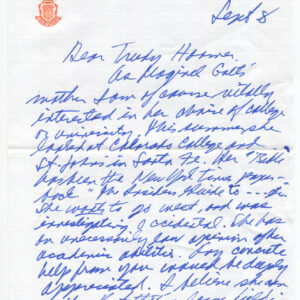 Sept 8
Dear Trudy Hoomer.
As Maginel Galt's
mother I am of course vitally
interested in her choice of college
or university. This summer she
looked at Colorado College and
St. Johns in Santa Fe. Her "Bible"
has been the New York Times paper-
back "The Insiders Guide to
She wants to go west, and was
investigating Occidental. She has
an unecessarily low opinion of her
academic abilities. Any concrete
help from you would be deeply
appreciated. I believe she